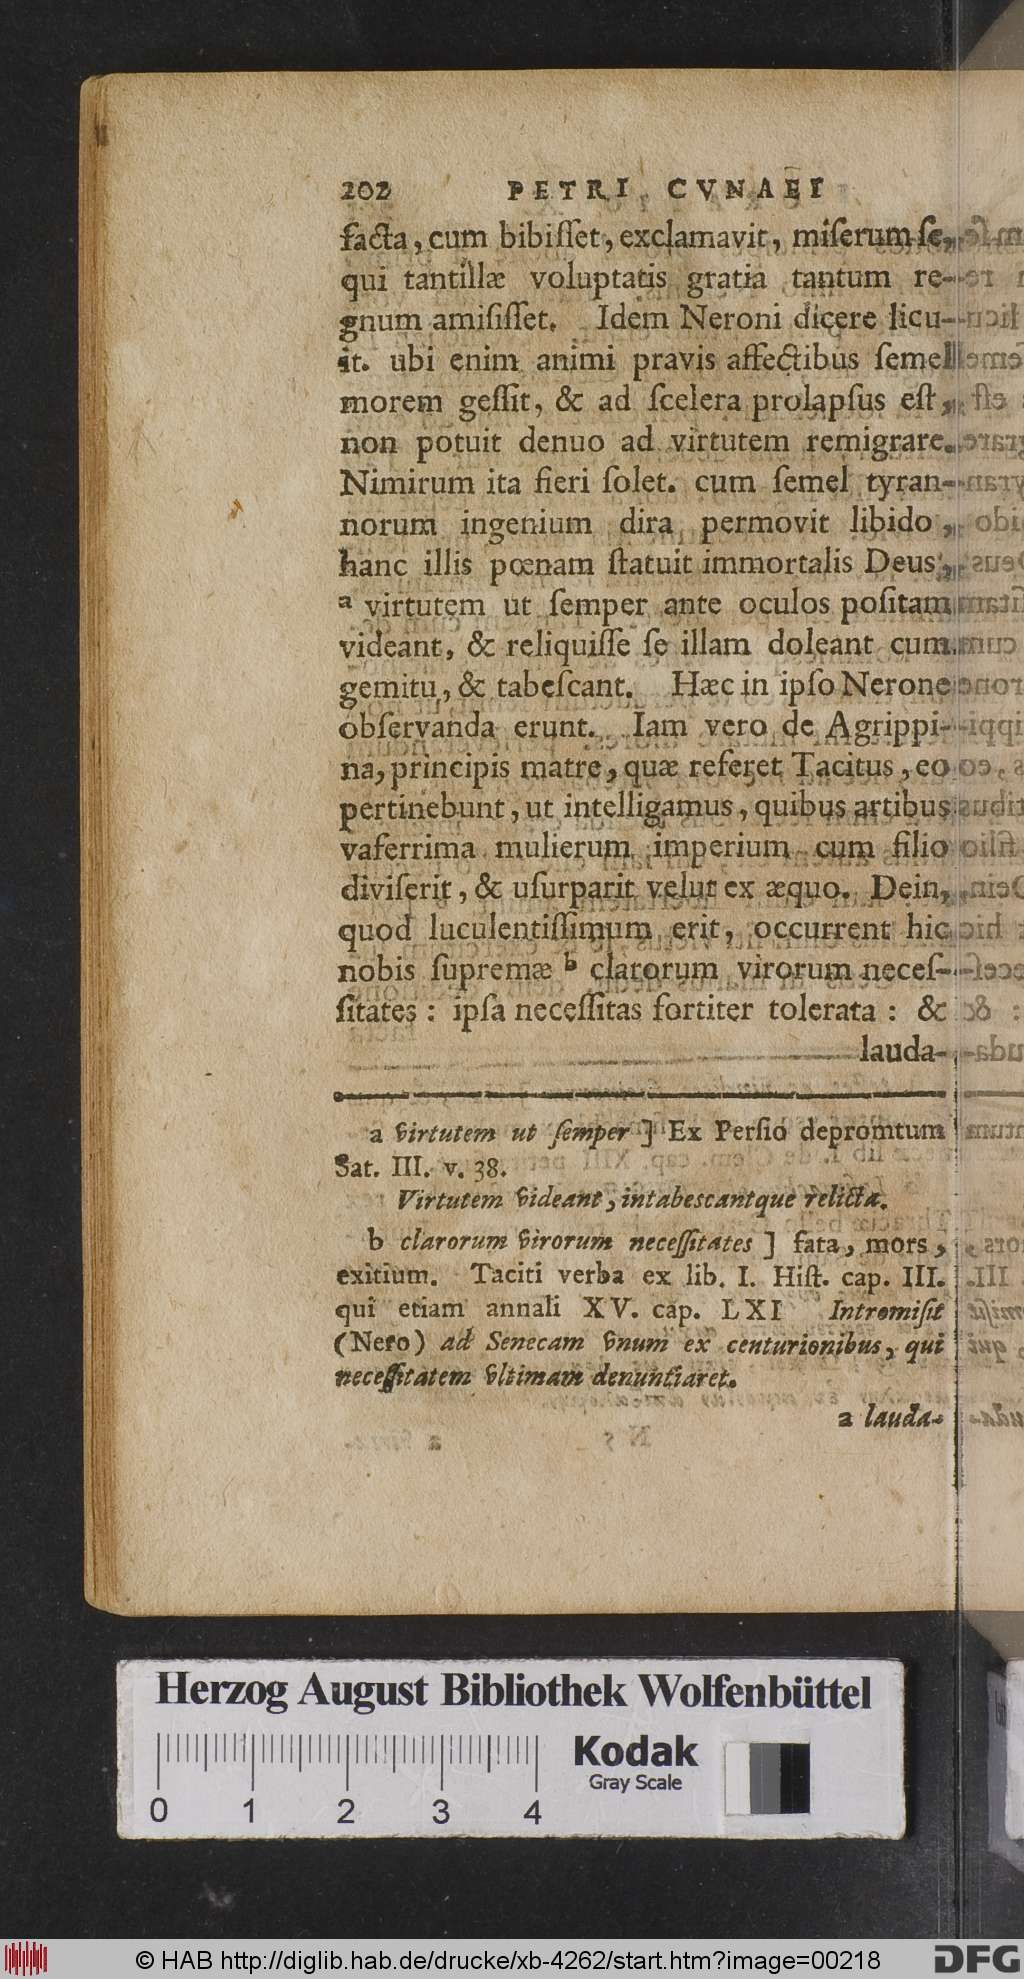 202 PETRI CVNAEI
facta, cum bibiſſet, exclamavit, miſerum ſe,
qui tantillæ voluptatis gratia tantum re-
gnum amiſiſſet. Idem Neroni dicere licu-
it. ubi enim animi pravis affectibus ſemel
morem geſſit, & ad ſcelera prolapſus eſt,
non potuit denuo ad virtutem remigrare.
Nimirum ita fieri ſolet. cum ſemel tyran-
norum ingenium dira permovit libido,
hanc illis pœnam ſtatuit immortalis Deus,
a virtutem ut ſemper ante oculos poſitam
videant, & reliquiſſe ſe illam doleant cum
gemitu, & tabeſcant. Hæc in ipſo Nerone
obſervanda erunt. Iam vero de Agrippi-
na, principis matre, quæ referet Tacitus, eo
pertinebunt, ut intelligamus, quibus artibus
vaferrima mulierum imperium cum filio
diviſerit, & uſurparit velut ex æquo. Dein,
quod luculentiſſimum erit, occurrent hic
nobis ſupremæ b clarorum virorum neceſ-
ſitates: ipſa neceſſitas fortiter tolerata: &
lauda-
a virtutem ut ſemper ] Ex Perſio depromtum
Sat. III. v. 38.
Virtutem videant, intabeſcantque relicta.
b clarorum virorum neceſſitates ] fata, mors,
exitium. Taciti verba ex lib. I. Hiſt. cap. III.
qui etiam annali XV. cap. LXI Intromiſit
(Nero) ad Senecam vnum ex centurionibus, qui
neceſſitatem vltimam denuntiaret.
a lauda-
Herzog August Bibliothek Wolfenbüttel
Kodak
Gray Scale
0 1 2 3 4
© HAB http://diglib.hab.de/drucke/xb-4262/start.htm?image=00218
DFG